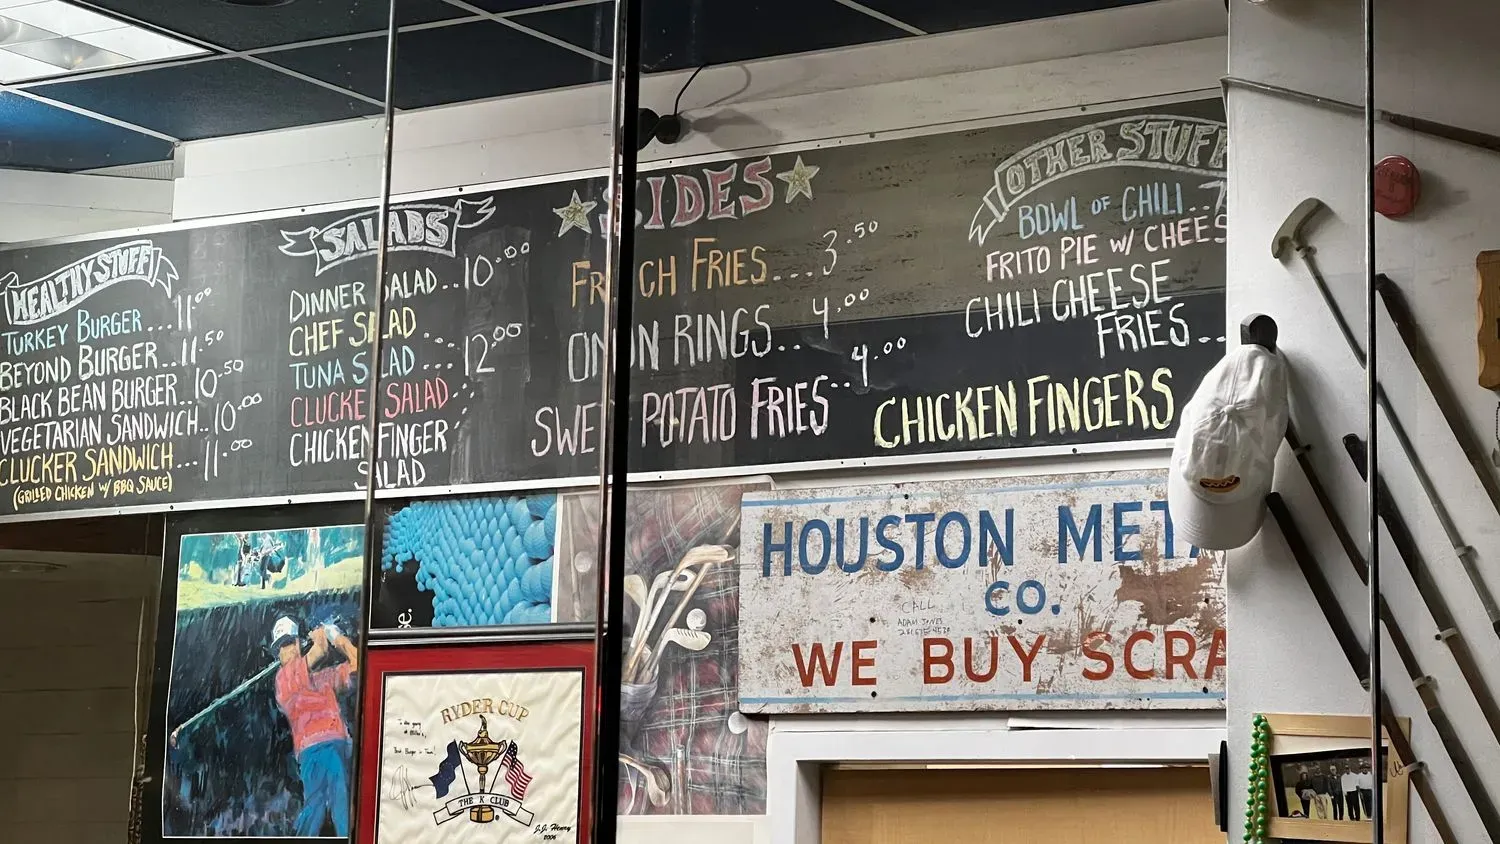 HEALTHY STUFF!
TURKEY BURGER...11.00
BEYOND BURGER...11.50
BLACK BEAN BURGER..10.50
VEGETARIAN SANDWICH..10.00
CLUCKER SANDWICH...11.00
(GRILLED CHICKEN W/ BBQ SAUCE)
SALADS
DINNER SALAD..10.00
CHEF SALAD....
TUNA SALAD...12.00
CLUCKE SALAD..
CHICKEN FINGER
SALAD
SIDES
FR CH FRIES...3.50
ON ON RINGS..4.00
SWE POTATO FRIES..4.00
OTHER STUFF
BOWL OF CHILI..7
FRITO PIE W/ CHEES
CHILI CHEESE
FRIES..
CHICKEN FINGERS
HOUSTON META
CO.
CALL
ADAM JONES
WE BUY SCRA
se.
RYDER CUP
THE K CLUB
J.J. Henry
2006